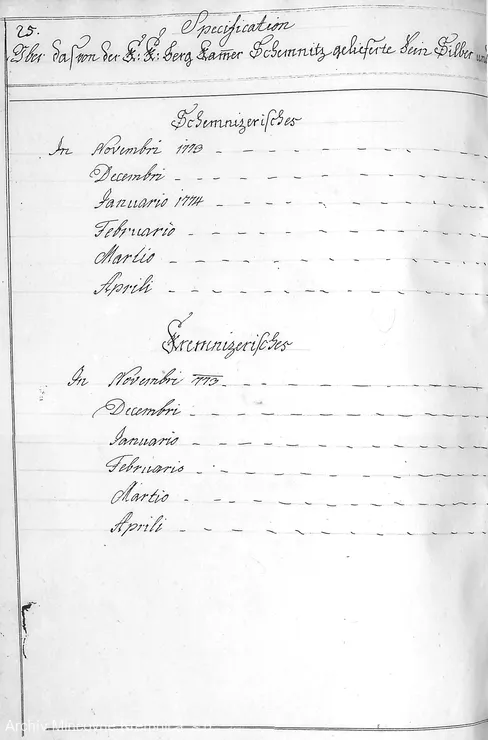 25.
Specification
Über das von der K: K: berg Kam̅er Schemnitz gelieferte Fein Silber und
Schemnizerisches
In Novembri 1773
Decembri
Januario 1774
Februario
Martio
Aprili
Kremnizerisches
In Novembri 773
Decembri
Januario
Februario
Martio
Aprili
Archív Mincovne Kremnica, š.p.